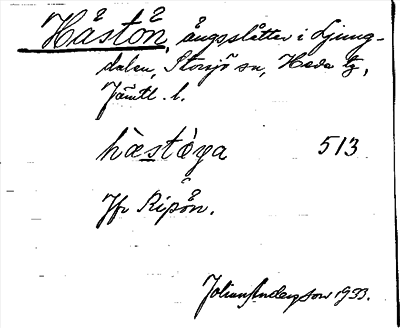 Håstön, ängsslåtter i Ljung-
dalen, Storsjö sn, Hede tg,
Jämtl. l.
hàestø̀ya 513
Jfr Ripön.
Johan Anderson 1933.